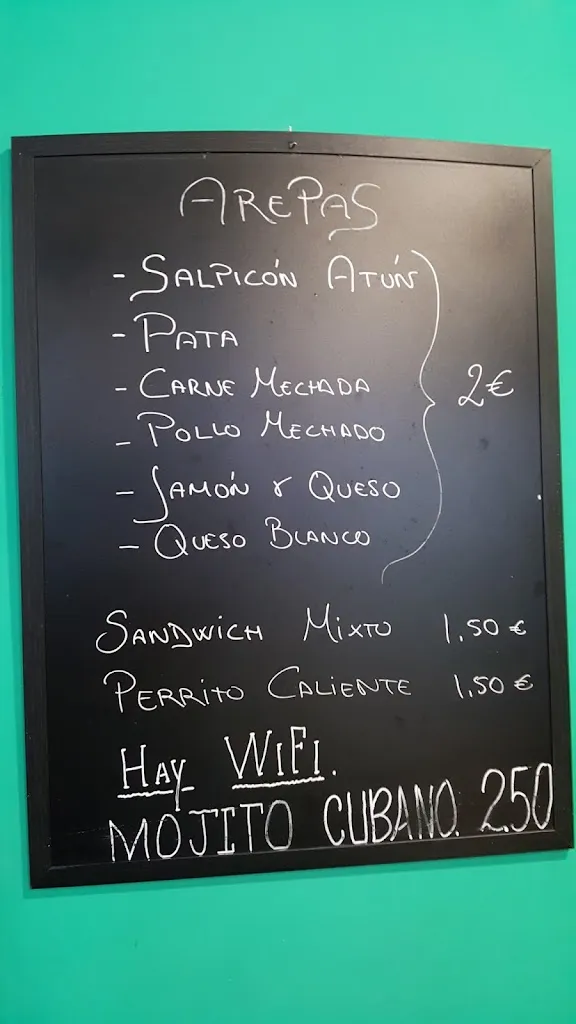 AREPAS
- SALPICÓN ATÚN
- PATA
- CARNE MECHADA
- POLLO MECHADO
- JAMÓN Y QUESO
- QUESO BLANCO
2€
SANDWICH MIXTO 1.50 €
PERRITO CALIENTE 1.50 €
HAY WIFI.
MOJITO CUBANO. 2.50